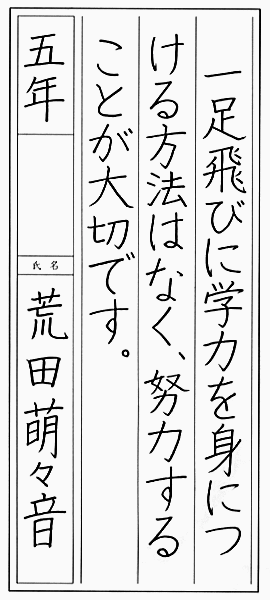 一足飛びに学力を身につ
ける方法はなく、努力する
ことが大切です。
五年
氏名
荒田萌々音